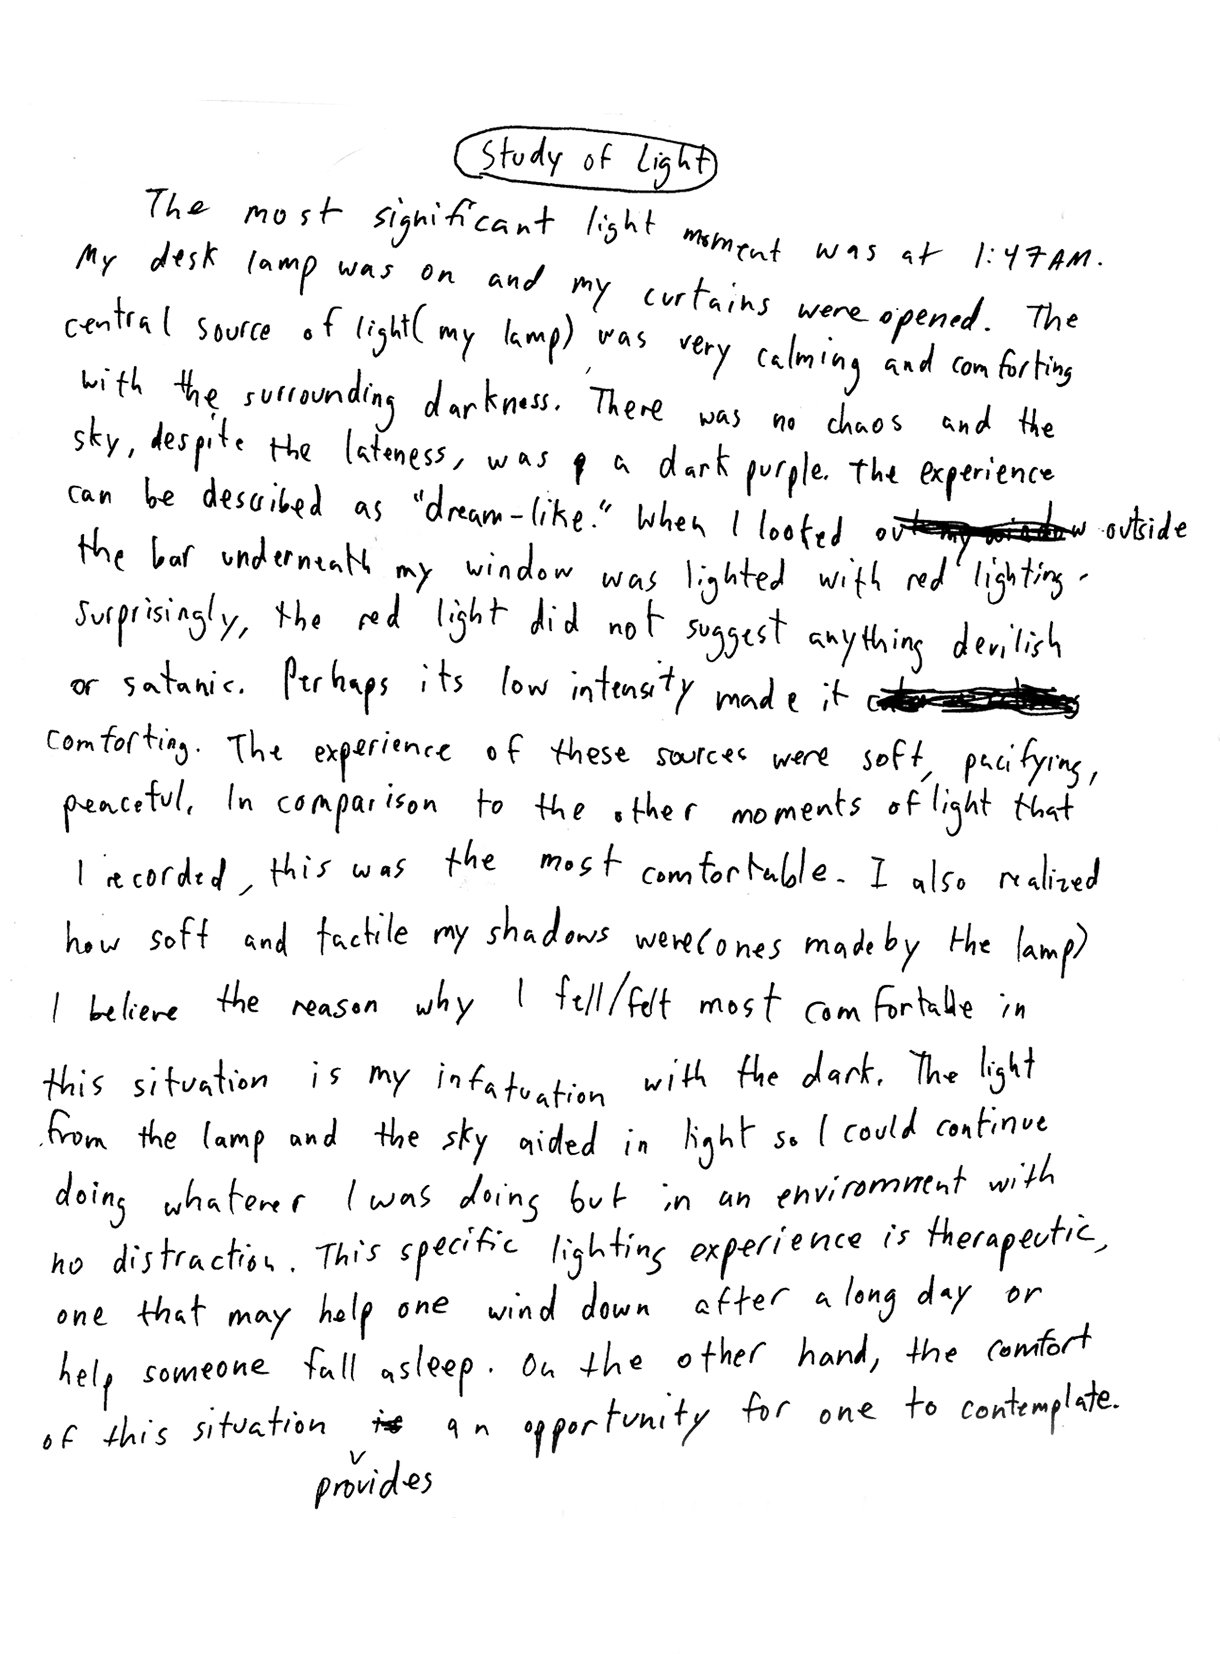 Study of Light
The most significant light moment was at 1:47AM.
My desk lamp was on and my curtains were opened. The
central source of light(my lamp) was very calming and comforting
with the surrounding darkness. There was no chaos and the
sky, despite the lateness, was a dark purple. The experience
can be described as "dream-like." When I looked out my window outside
the bar underneath my window was lighted with red lighting.
Surprisingly, the red light did not suggest anything devilish
or satanic. Perhaps its low intensity made it
comforting. The experience of these sources were soft, pacifying,
peaceful. In comparison to the other moments of light that
I recorded, this was the most comfortable. I also realized
how soft and tactile my shadows were(ones made by the lamp)
I believe the reason why I fell/felt most comfortable in
this situation is my infatuation with the dark. The light
from the lamp and the sky aided in light so I could continue
doing whatever I was doing but in an enviromnent with
no distraction. This specific lighting experience is therapeutic,
one that may help one wind down after a long day or
help someone fall asleep. On the other hand, the comfort
of this situation is an opportunity for one to contemplate.
provides